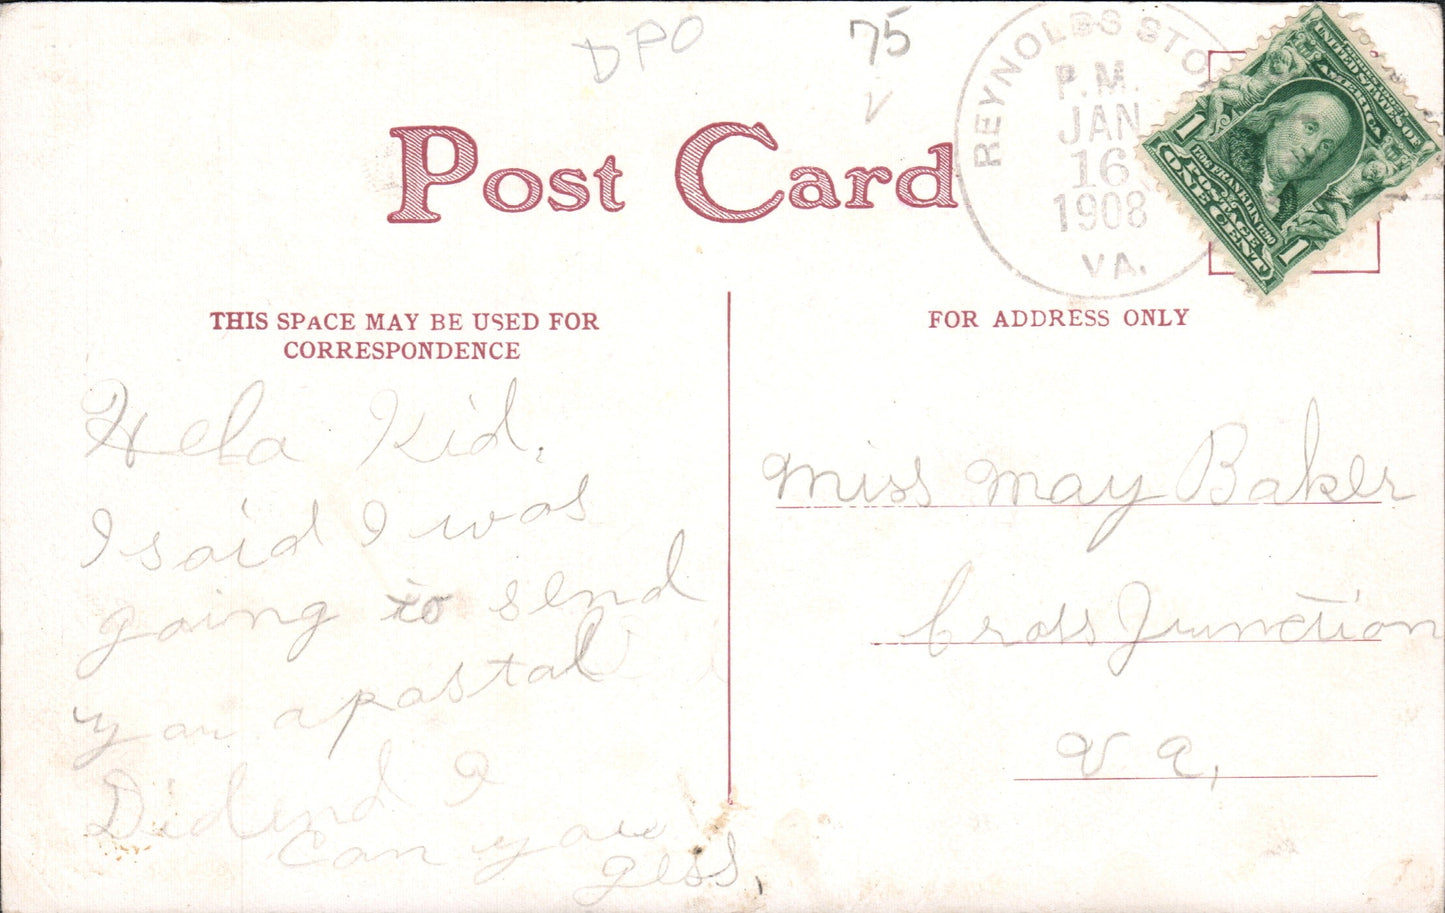 DPO
75
v
REYNOLDS STO
P.M.
JAN
16
1908
VA.
UNITED STATES OF
AMERICA
1 1
FRANKLIN
POSTAGE
ONE CENT
Post Card
THIS SPACE MAY BE USED FOR
CORRESPONDENCE
FOR ADDRESS ONLY
Helo Kid.
I said I was
going to send
you a postal
Didend I
Can you
gess,
Miss May Baker
Cross Junction
Va,